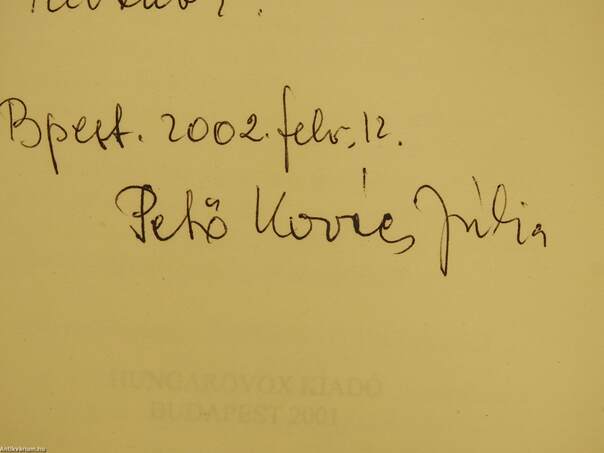 Bpest. 2002. febr. 12.
Pető Kovács Júlia
HUNGAROVOX KIADÓ
BUDAPEST 2001
Antikvarium.hu